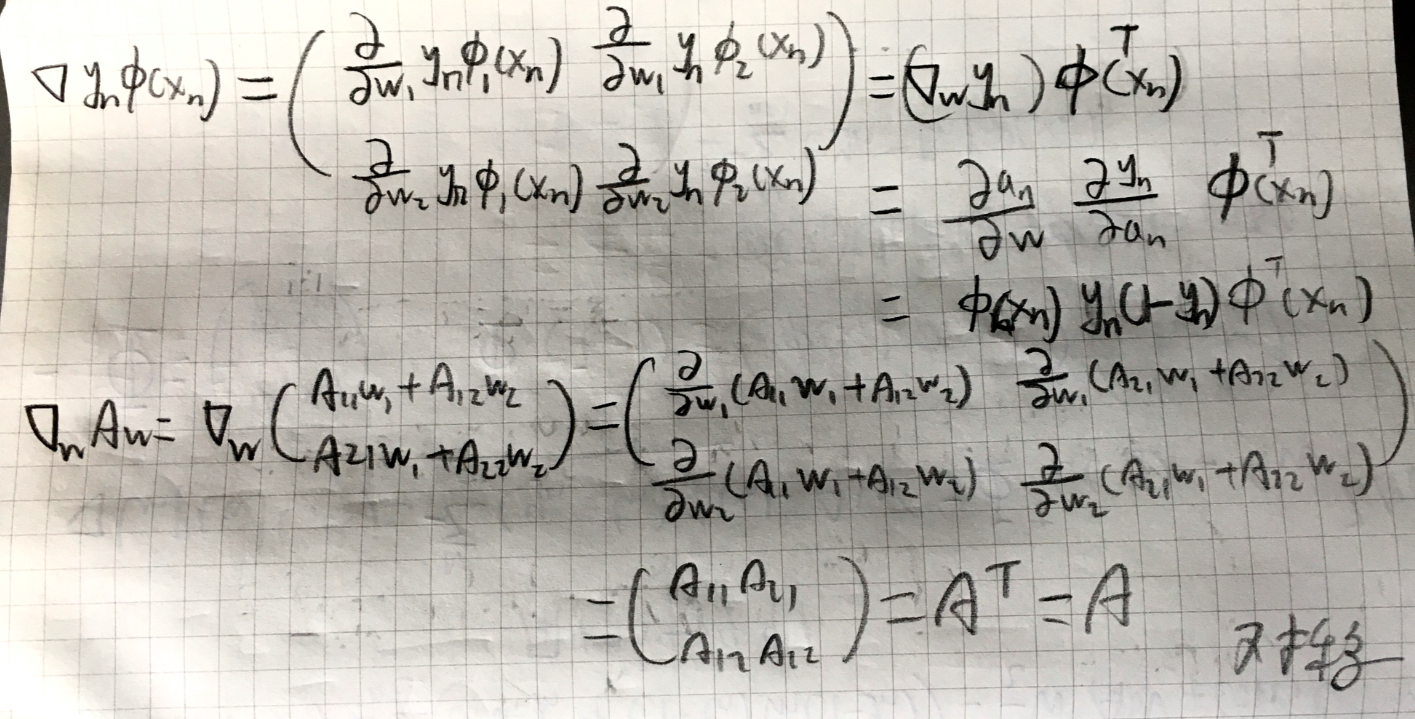 ∇ yₙϕ(xₙ) = ( ∂/∂w₁ yₙϕ₁(xₙ) ∂/∂w₁ yₙϕ₂(xₙ) ) = (∇w yₙ) ϕᵀ(xₙ)
∂/∂w₂ yₙϕ₁(xₙ) ∂/∂w₂ yₙϕ₂(xₙ) = ∂aₙ/∂w ∂yₙ/∂aₙ ϕᵀ(xₙ)
= ϕ(xₙ) yₙ(1-yₙ) ϕᵀ(xₙ)
∇w Aw = ∇w ( A₁₁w₁ + A₁₂w₂ ) = ( ∂/∂w₁ (A₁₁w₁ + A₁₂w₂) ∂/∂w₁ (A₂₁w₁ + A₂₂w₂) )
A₂₁w₁ + A₂₂w₂ ∂/∂w₂ (A₁₁w₁ + A₁₂w₂) ∂/∂w₂ (A₂₁w₁ + A₂₂w₂)
= ( A₁₁ A₂₁ ) = Aᵀ = A
A₁₂ A₂₂ 対称